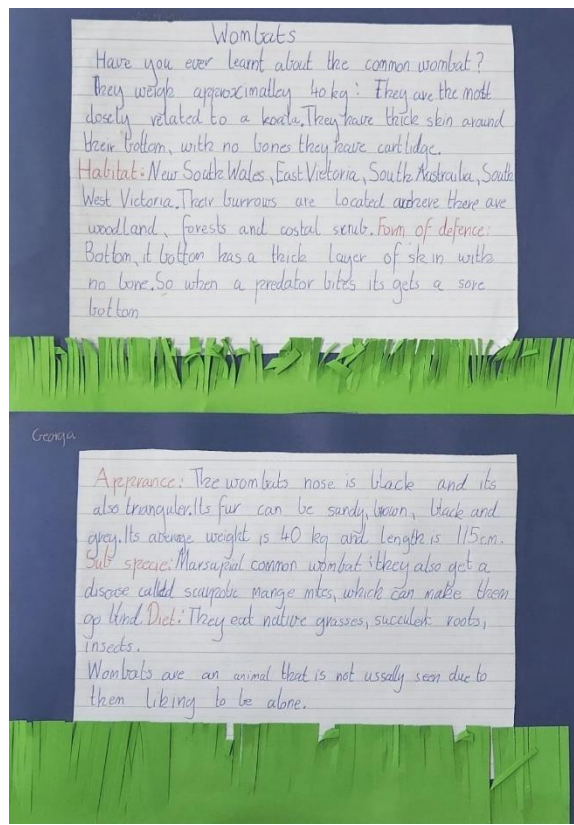 Wombats
Have you ever learnt about the common wombat?
They weigh approximatley 40kg: They are the most
closely related to a koala. They have thick skin around
their bottom, with no bones they have cartlidge.
Habitat: New South Wales, East Victoria, South Australia, South
West Victoria. Their burrows are located where there are
woodland, forests and costal scrub. Form of defence:
Bottom, it bottom has a thick layer of skin with
no bone. So when a predator bites its gets a sore
bottom
Georga
Apprance: The wombats nose is black and its
also trianguler. Its fur can be sandy, brown, black and
grey. Its average weight is 40 kg and length is 115cm.
Sub specie: Marsupial common wombat: they also get a
disease called mange mites, which can make them
go blind. Diet: They eat native grasses, succulent roots,
insects.
Wombats are an animal that is not ussally seen due to
them liking to be alone.